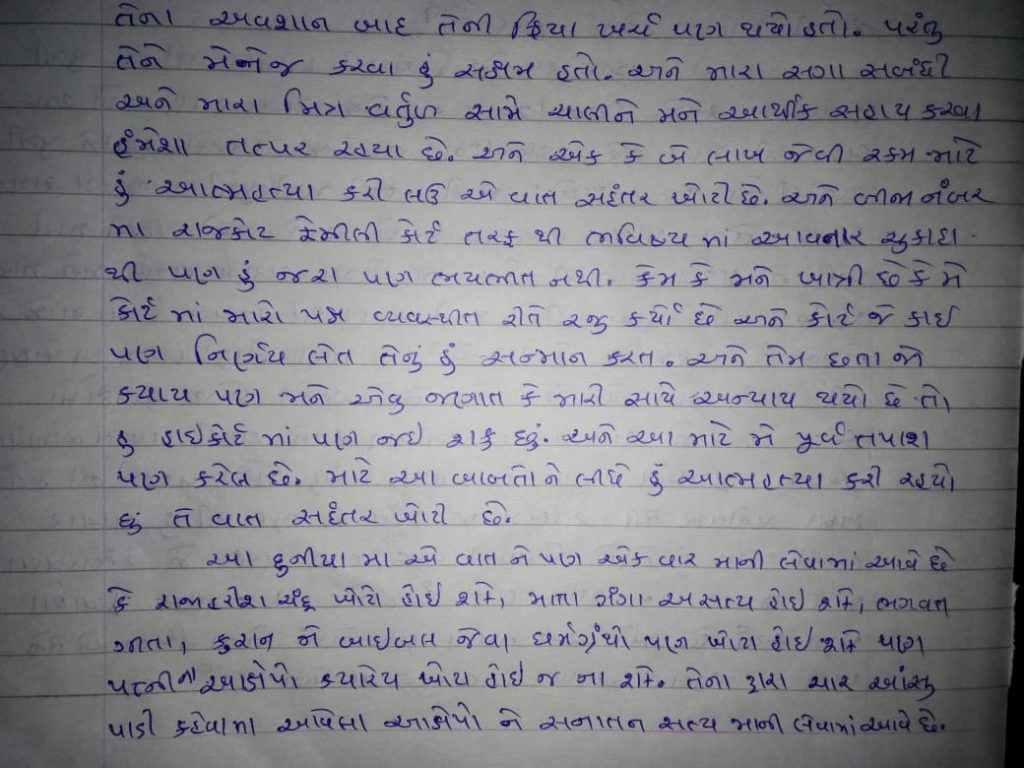 તેના અવશાન બાદ તેની ક્રિયા ખર્ચ પણ થયો હતો. પરંતુ
તેને મેનેજ કરવા હું સક્ષમ હતો. અને મારા સગા સબંધી
અને મારા મિત્ર વર્તુળ સામે ચાલીને મને આર્થીક સહાય કરવા
હંમેશા તત્પર રહયા છે. અને એક કે બે લાખ જેવી રકમ માટે
હું આત્મહત્યા કરી લઉ એ વાત સદંતર ખોટી છે. અને બીજા નંબર
મા રાજકોટ ફેમીલી કોર્ટ તરફ થી ભવિષ્ય માં આવનાર ચુકાદા
થી પણ હું જરા પણ ભયભીત નથી. કેમ કે મને ખાત્રી છે કે મે
કોર્ટ માં મારો પક્ષ વ્યવસ્થીત રીતે રજુ કર્યો છે અને કોર્ટ જે કાઈ
પણ નિર્ણય લેત તેનું હું સન્માન કરત. અને તેમ છતા જો
કયાય પણ મને એવુ જણાત કે મારી સાથે અન્યાય થયો છે તો
હું હાઈકોર્ટ માં પણ જઈ શકુ છું. અને આ માટે મે પુર્વ તપાશ
પણ કરેલ છે. માટે આ બાબતો ને લીધે હું આત્મહત્યા કરી રહયો
છું તે વાત સદંતર ખોટી છે.
આ દુનીયા મા એ વાત ને પણ એક વાર માની લેવામાં આવે છે
કે રાજા હરીશ ચંદ્ર ખોટો હોઈ શકે, માતા ગંગા અસત્ય હોઈ શકે, ભગવત
ગીતા, કુરાન ને બાઈબલ જેવા ધર્મગ્રંથો પણ ખોટા હોઈ શકે પણ
પત્નીના આક્ષેપો કયારેય ખોટા હોઈ જ ના શકે. તેના દ્વારા ચાર આંસુ
પાડી કહેવામા આવેલા આક્ષેપો ને સનાતન સત્ય માની લેવામાં આવે છે.